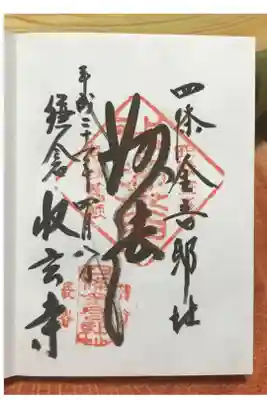 四條金吾邸址
妙法
平成二十年四月八日
鎌倉 收玄寺